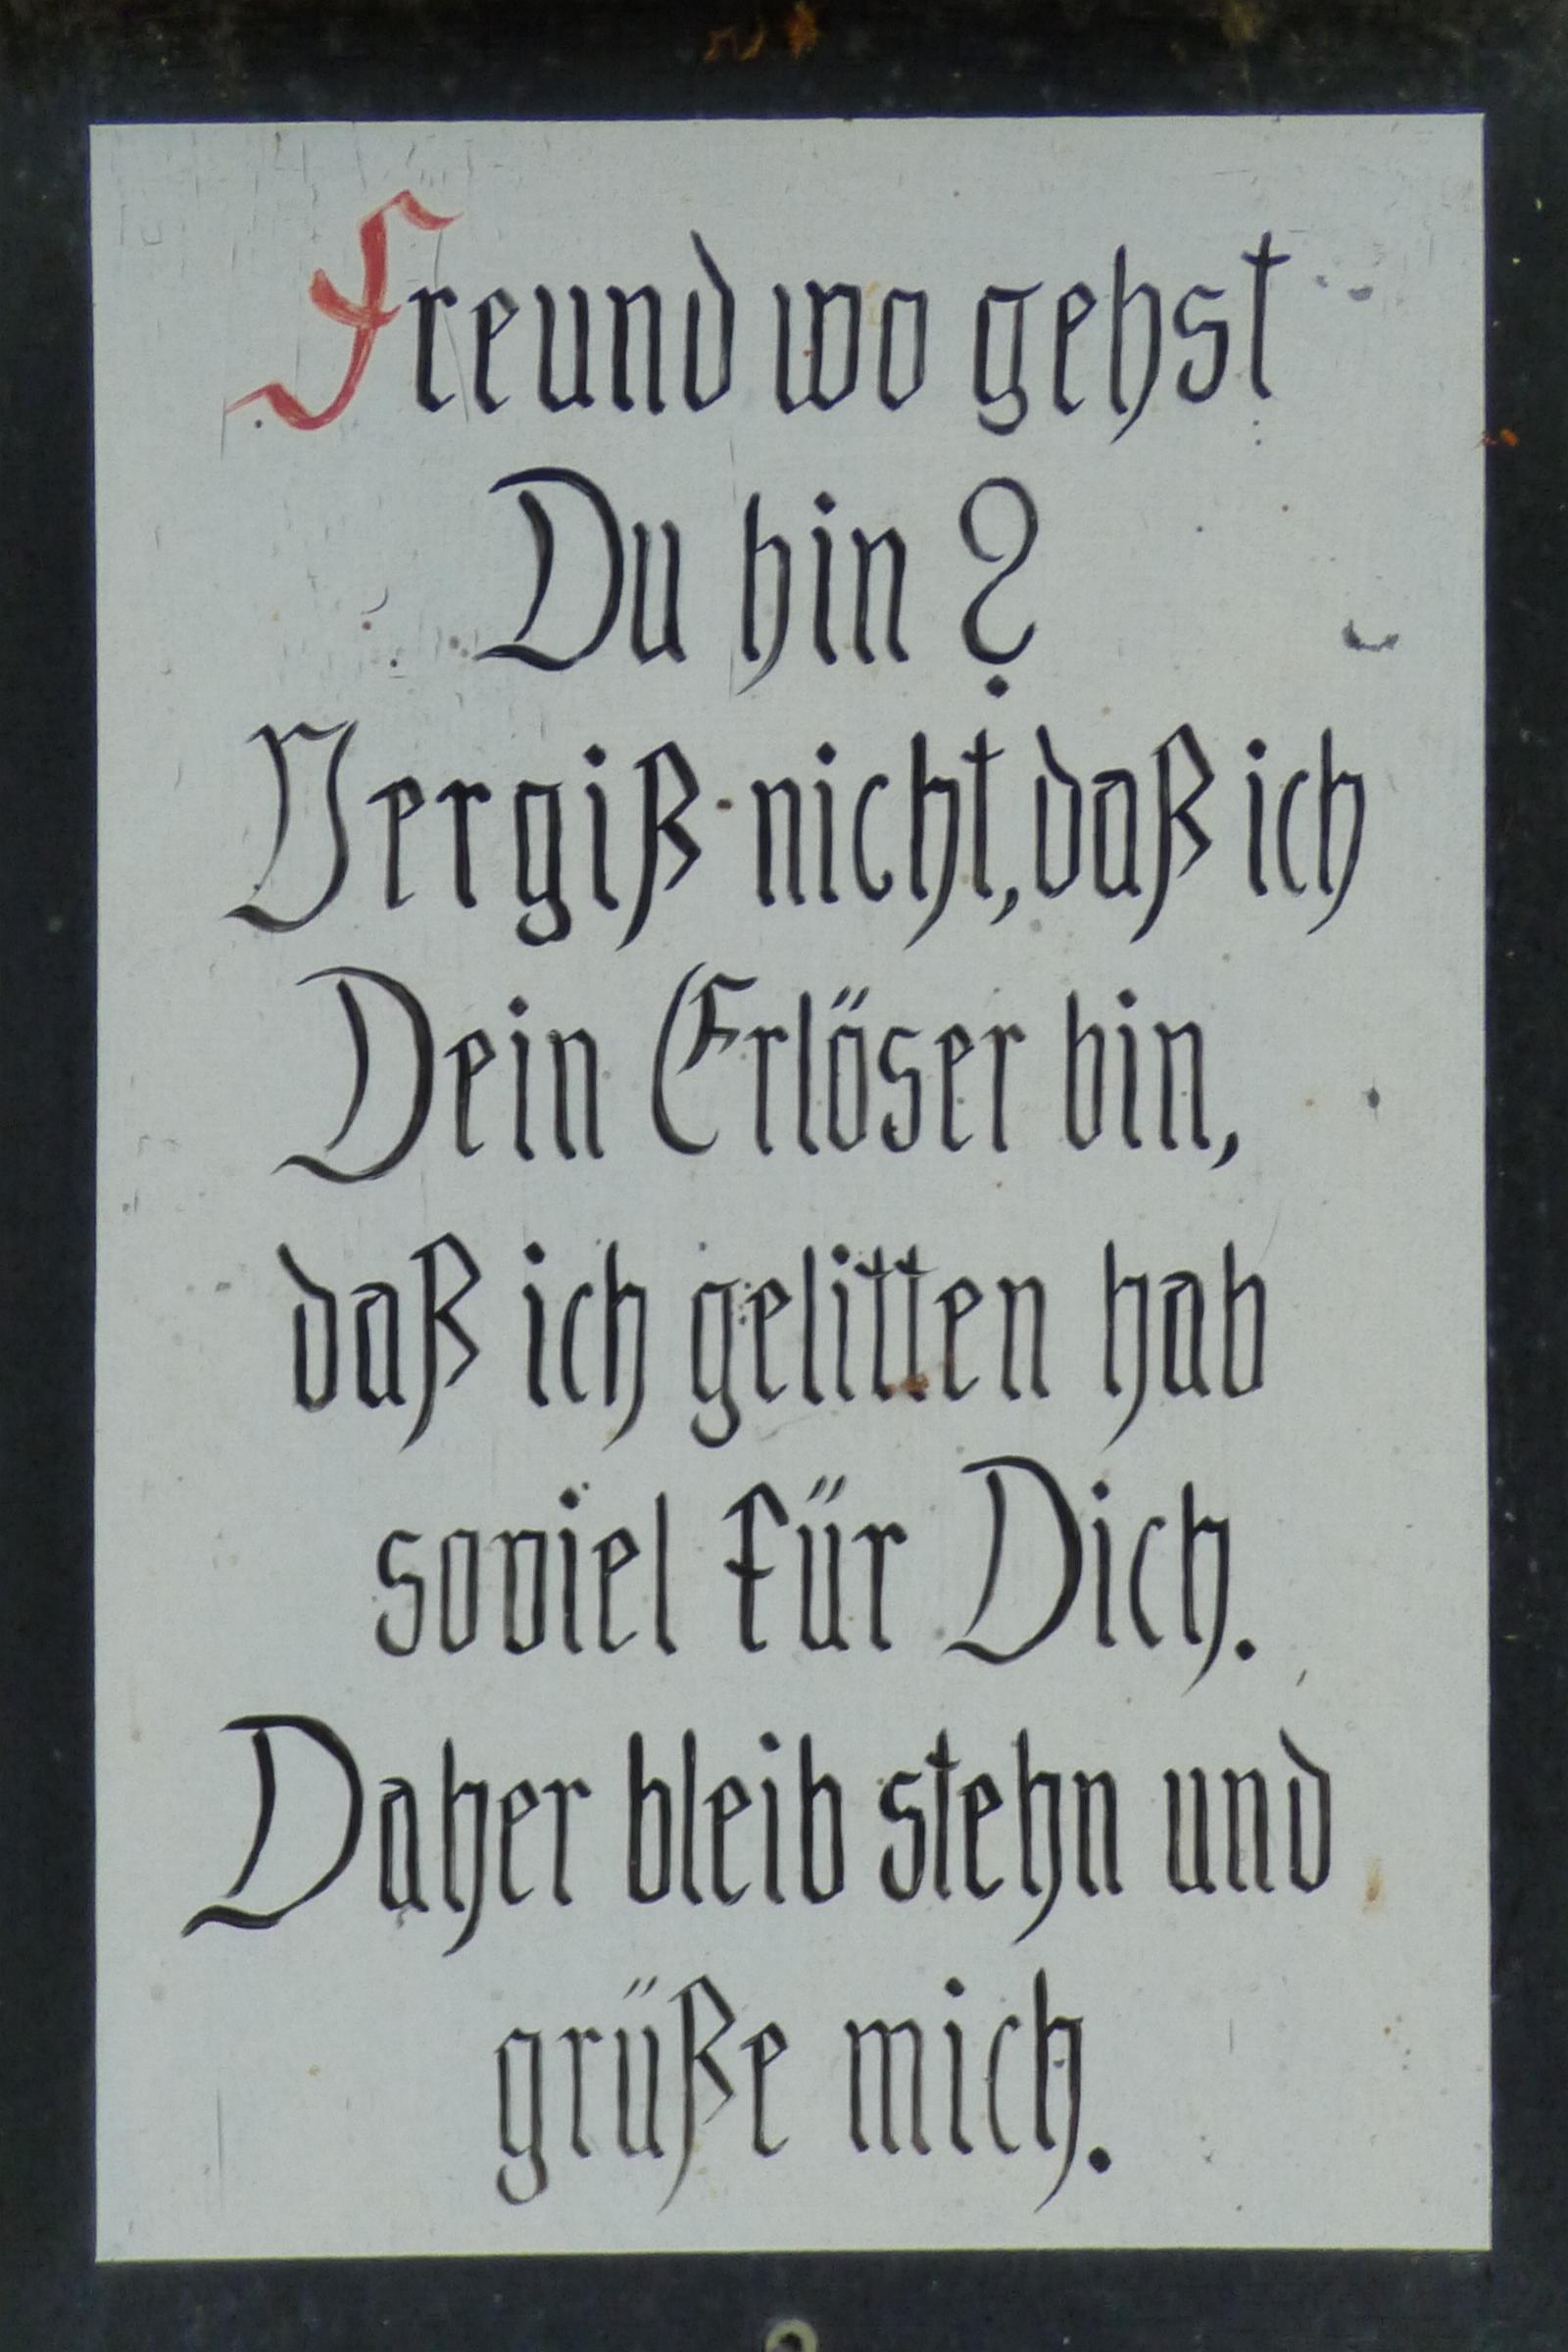 Freund wo gehst
Du hin ?
Vergiß nicht, daß ich
Dein Erlöser bin,
daß ich gelitten hab
soviel für Dich.
Daher bleib stehn und
grüße mich.